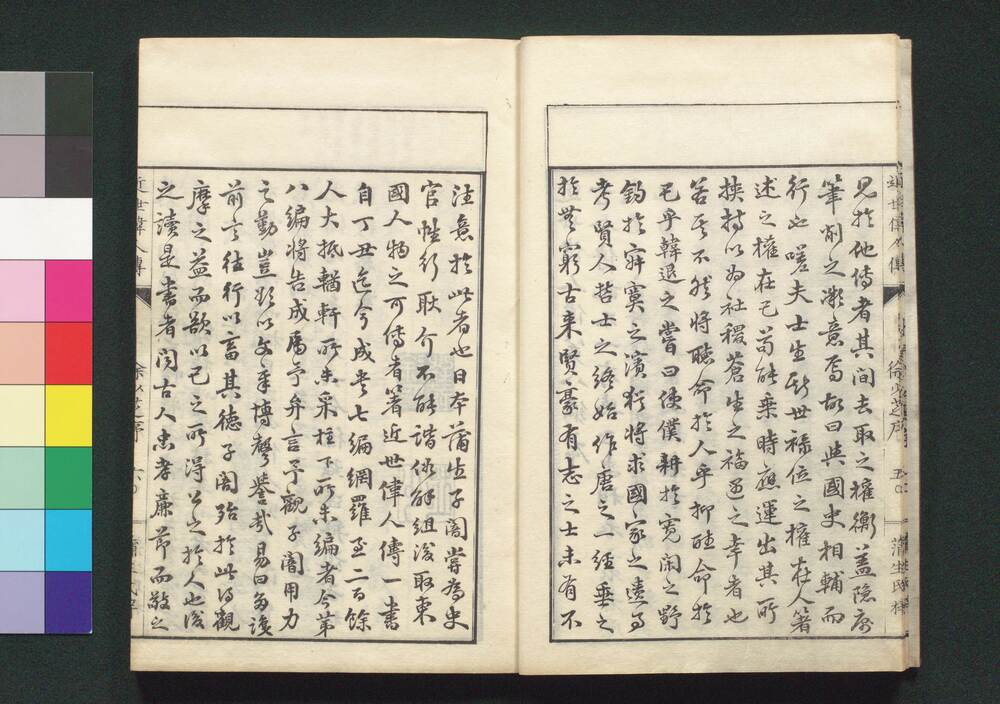 見於他傳者其間去取之權衡蓋隱寓
筆削之微意焉故曰與國史相輔而
行也嗟夫士生斯世祿位之權在人著
述之權在己苟能乘時應運出其所
挾持以爲社稷蒼生之福遇之幸者也
若其不然將聽命於人乎抑聽命於
己乎韓退之嘗曰使僕耕於寬閒之野
釣於寂寞之濱猶將求國家之遺事
考賢人哲士之終始作唐之一經垂之
於無窮古來賢豪有志之士未有不
注意於此者也日本蒲生子闇嘗爲史
官性行耿介不能諧俗解組後取東
國人物之可傳者著近世偉人傳一書
自丁丑迄今成其七編網羅至二百餘
人大抵輶軒所未采柱下所未編者今第
八編將告成屬予弁言予觀子闇用力
之勤豈欲以文章博聲譽哉易曰多識
前言往行以畜其德子闇殆於此得觀
摩之益而欲以己之所得公之於人也後
之讀是書者閱古人忠孝廉節而敬之
近世偉人傳
徐少芝序
五
蒲生氏梓
近世偉人傳
徐少芝序
六